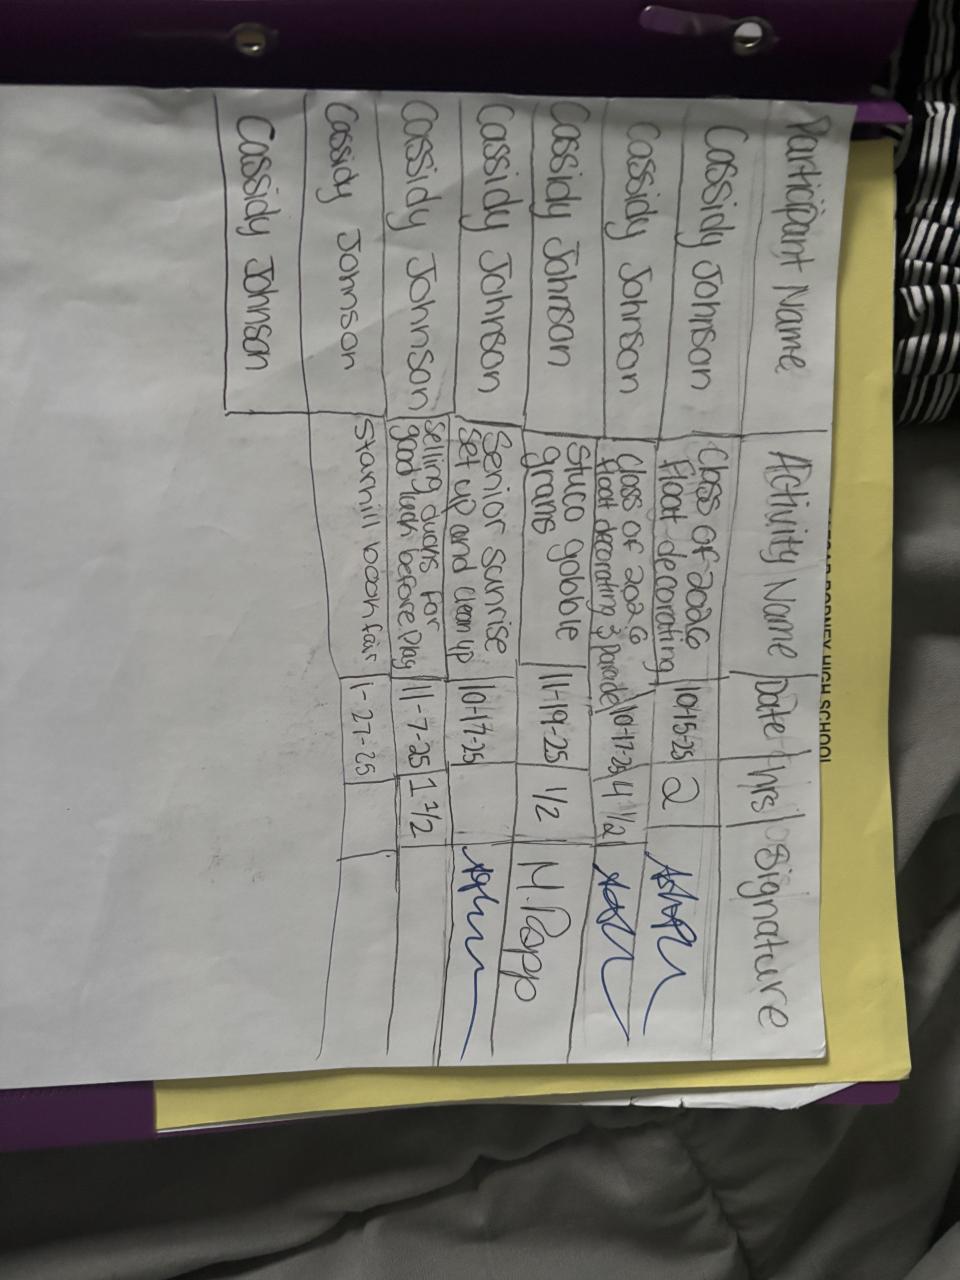 Participant Name Activity Name Date hrs signature
Cassidy Johnson Class of 2026
Float decorating 10-15-25 2
Cassidy Johnson Class of 2026
float decorating & parade 10-17-25 4 1/2
Cassidy Johnson Stuco gobble
grams 11-19-25 1/2 M. Papp
Cassidy Johnson Senior sunrise
Set up and clean up 10-17-25
Cassidy Johnson Selling ducks for
good luck before play 11-7-25 1 1/2
Cassidy Johnson Starhill book fair 1-27-25
Cassidy Johnson
HIGH SCHOOL